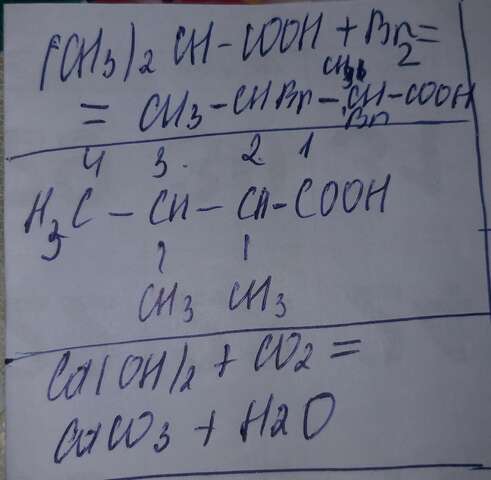 (CH3)2 CH-COOH + Br2 =
= CH3-CHBr-CH-COOH
CH3
Br
4 3. 2. 1
H3C - CH - CH - COOH
CH3 CH3
Ca(OH)2 + CO2 =
CaCO3 + H2O